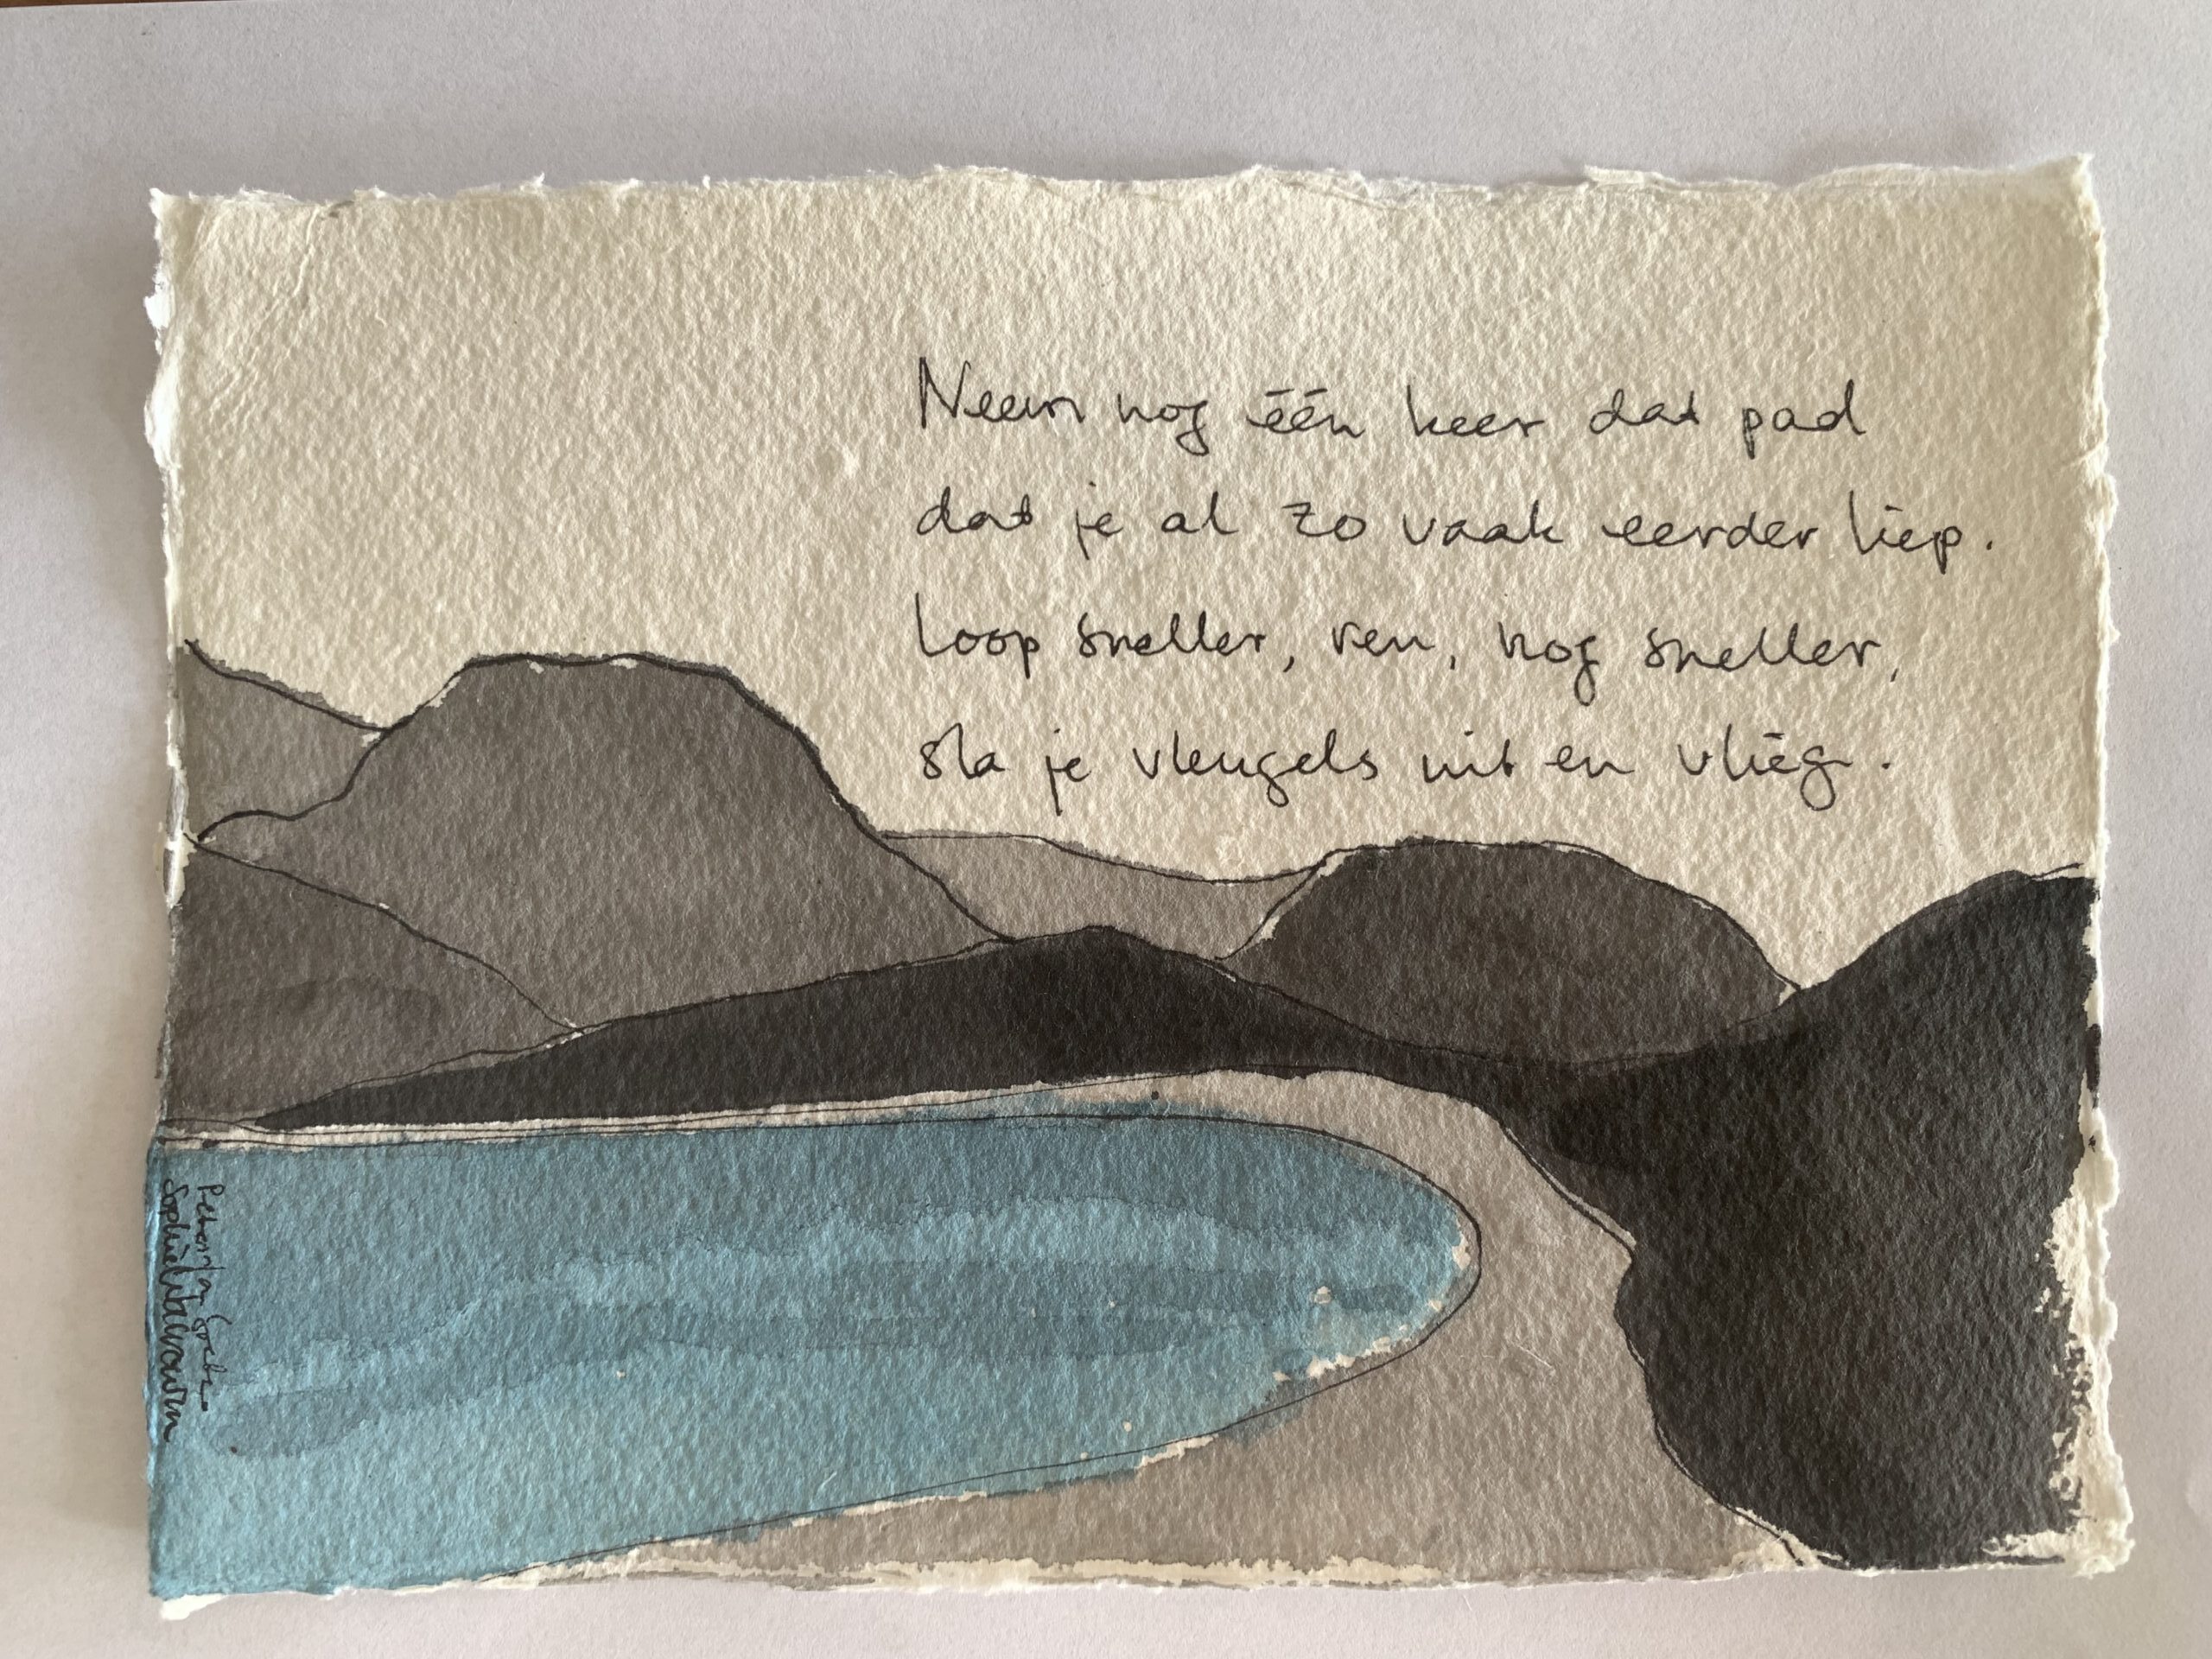 Neem nog één keer dat pad
dat je al zo vaak eerder liep.
Loop sneller, ren, nog sneller,
sla je vleugels uit en vlieg.